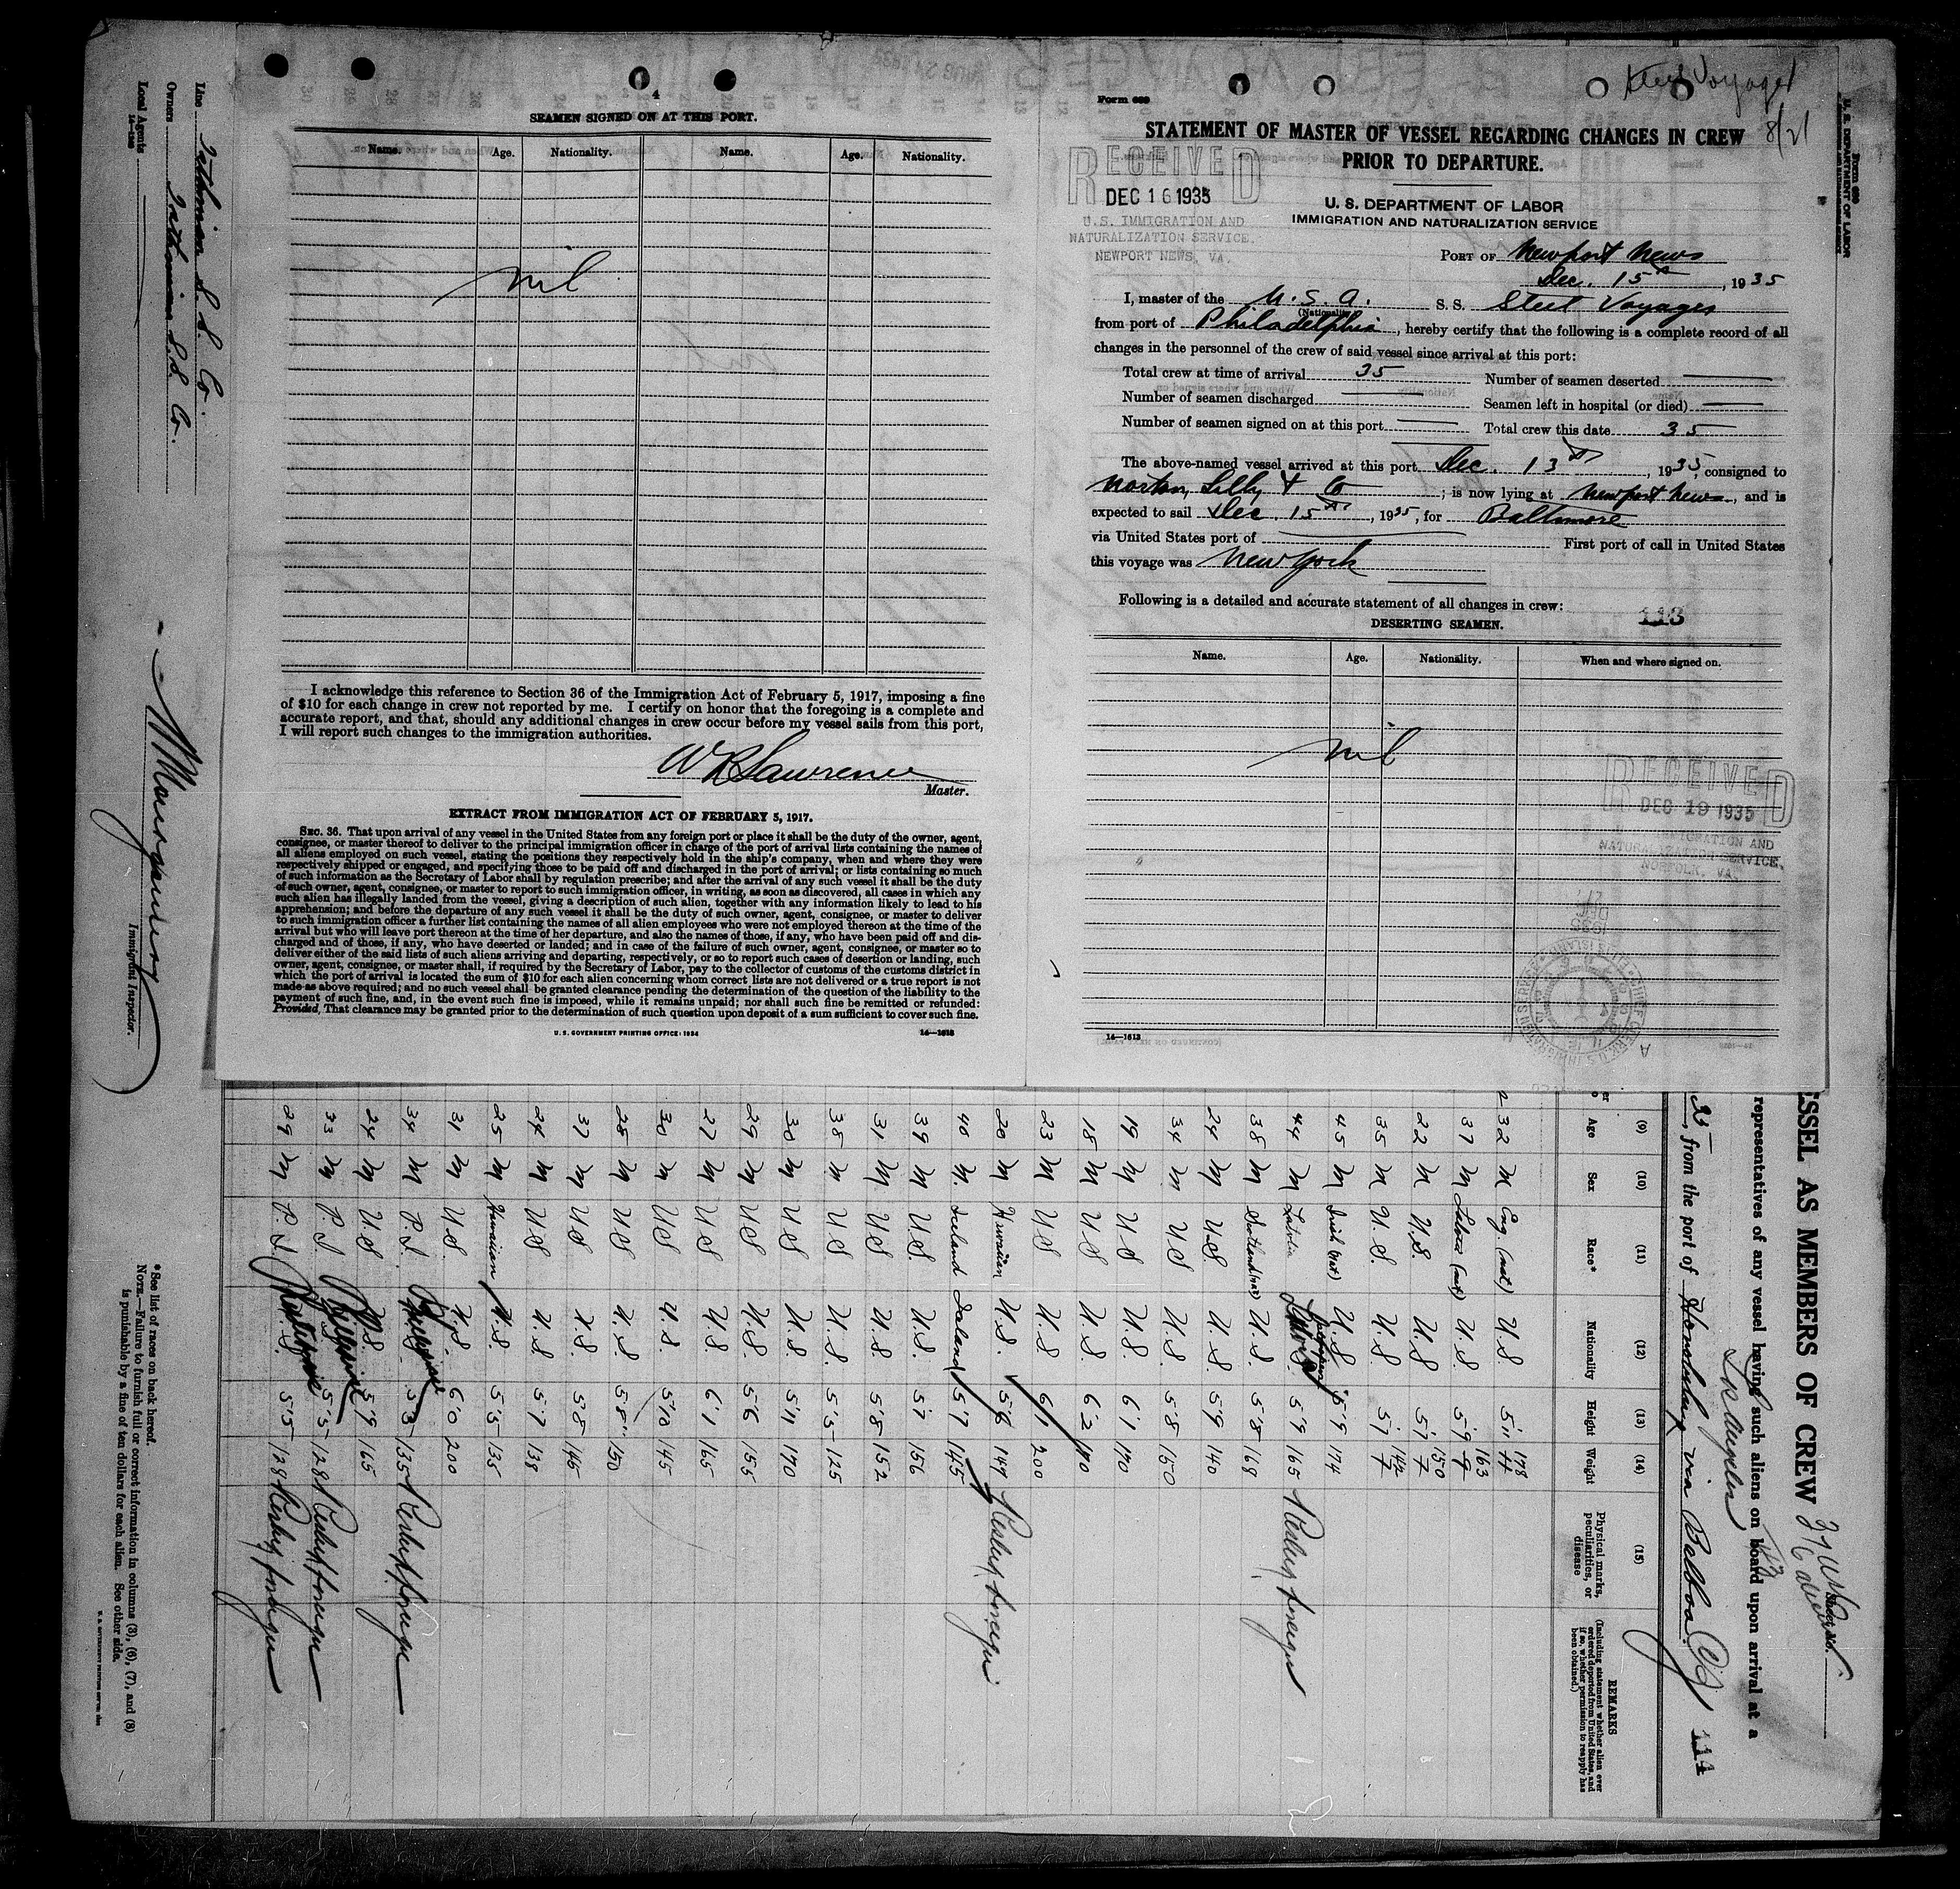 4
SEAMEN SIGNED ON AT THIS PORT.
Name. Age. Nationality. Name. Age. Nationality.
nil
I acknowledge this reference to Section 36 of the Immigration Act of February 5, 1917, imposing a fine
of $10 for each change in crew not reported by me. I certify on honor that the foregoing is a complete and
accurate report, and that, should any additional changes in crew occur before my vessel sails from this port,
I will report such changes to the immigration authorities.
W R Lawrence
Master.
EXTRACT FROM IMMIGRATION ACT OF FEBRUARY 5, 1917.
SEC. 36. That upon arrival of any vessel in the United States from any foreign port or place it shall be the duty of the owner, agent,
consignee, or master thereof to deliver to the principal immigration officer in charge of the port of arrival lists containing the names of
all aliens employed on such vessel, stating the positions they respectively hold in the ship's company, when and where they were
respectively shipped or engaged, and specifying those to be paid off and discharged in the port of arrival; or lists containing so much
of such information as the Secretary of Labor shall by regulation prescribe; and after the arrival of any such vessel it shall be the duty
of such owner, agent, consignee, or master to report to such immigration officer, in writing, as soon as discovered, all cases in which any
such alien has illegally landed from the vessel, giving a description of such alien, together with any information likely to lead to his
apprehension; and before the departure of any such vessel it shall be the duty of such owner, agent, consignee, or master to deliver
to such immigration officer a further list containing the names of all alien employees who were not employed thereon at the time of the
arrival but who will leave port thereon at the time of her departure, and also the names of those, if any, who have been paid off and dis-
charged and of those, if any, who have deserted or landed; and in case of the failure of such owner, agent, consignee, or master so to
deliver either of the said lists of such aliens arriving and departing, respectively, or so to report such cases of desertion or landing, such
owner, agent, consignee, or master shall, if required by the Secretary of Labor, pay to the collector of customs of the customs district in
which the port of arrival is located the sum of $10 for each alien concerning whom correct lists are not delivered or a true report is not
made as above required; and no such vessel shall be granted clearance pending the determination of the question of the liability to the
payment of such fine, and, in the event such fine is imposed, while it remains unpaid; nor shall such fine be remitted or refunded:
Provided, That clearance may be granted prior to the determination of such question upon deposit of a sum sufficient to cover such fine.
U. S. GOVERNMENT PRINTING OFFICE: 1934 14—1613
Steel Voyager
8/21
Form 689
STATEMENT OF MASTER OF VESSEL REGARDING CHANGES IN CREW
PRIOR TO DEPARTURE.
RECEIVED
DEC 16 1935
U.S. IMMIGRATION AND
NATURALIZATION SERVICE.
NEWPORT NEWS, VA.
U. S. DEPARTMENT OF LABOR
IMMIGRATION AND NATURALIZATION SERVICE
PORT OF Newport News
Dec. 15th, 1935
I, master of the U. S. A. S. S. Steel Voyager
(Nationality)
from port of Philadelphia, hereby certify that the following is a complete record of all
changes in the personnel of the crew of said vessel since arrival at this port:
Total crew at time of arrival 35 Number of seamen deserted
Number of seamen discharged Seamen left in hospital (or died)
Number of seamen signed on at this port Total crew this date 35
The above-named vessel arrived at this port Dec. 13th, 1935, consigned to
Norton, Lilly & Co; is now lying at Newport News, and is
expected to sail Dec. 15th, 1935, for Baltimore
via United States port of First port of call in United States
this voyage was New York
Following is a detailed and accurate statement of all changes in crew: 113
DESERTING SEAMEN.
Name. Age. Nationality. When and where signed on.
nil
RECEIVED
DEC 19 1935
NORFOLK, VA.
14—1613
Line Isthmian S. S. Co.
Owners Isthmian S.S. Co.
Local Agents
Immigrant Inspector.
*See list of races on back hereof.
NOTE.—Failure to furnish full or correct information in columns (3), (6), (7), and (8)
is punishable by a fine of ten dollars for each alien. See other side.
ESSEL AS MEMBERS OF CREW
representatives of any vessel having such aliens on board upon arrival at a
Los Angeles
35, from the port of Honolulu via Balboa 114
(9) (10) (11) (12) (13) (14) (15)
Age Sex Race* Nationality Height Weight Physical marks, peculiarities, or disease REMARKS
(Including statement whether alien ever ordered deported from United States, and if so, whether permission to reapply has been obtained.)
32 M Eng. (nat) U S 5'11 178
37 M U.S. 5'9 163
22 M U.S. U.S 5'7 150
35 M U.S. U.S. 5'7 142
45 M Irish (nat) U.S. 5'9 174
44 M Latvia 5'9 165
38 M Scotland (nat) U.S. 5'8 168
24 M U.S. U.S. 5'9 140
34 M U S U.S. 5'8 150
19 M U S U.S. 6'1 170
18 M U S U.S. 6'2 170
23 M U S U.S. 6'1 200
20 M Hawaiian U.S. 5'6 147
40 M. Iceland Iceland 5'7 145
39 M U.S. U.S. 5'7 156
31 M. U S U.S. 5'8 152
38 M U S U.S. 5'5 125
30 M U S U.S. 5'11 170
29 M U S U.S. 5'6 155
27 M U S U.S. 6'1 165
30 M U S U.S. 5'10 145
28 M U S U.S. 5'8 150
37 M U S U.S. 5'8 145
24 M U.S U.S. 5'7 138
25 M Hawaiian U.S. 5'5 135
31 M U.S. U.S. 6'0 200
34 M P.I. Philippine 5'3 135
24 M U.S U.S 5'9 165
33 M P.I. Philippine 5'5 128
29 M P.I. Philippine 5'5 128